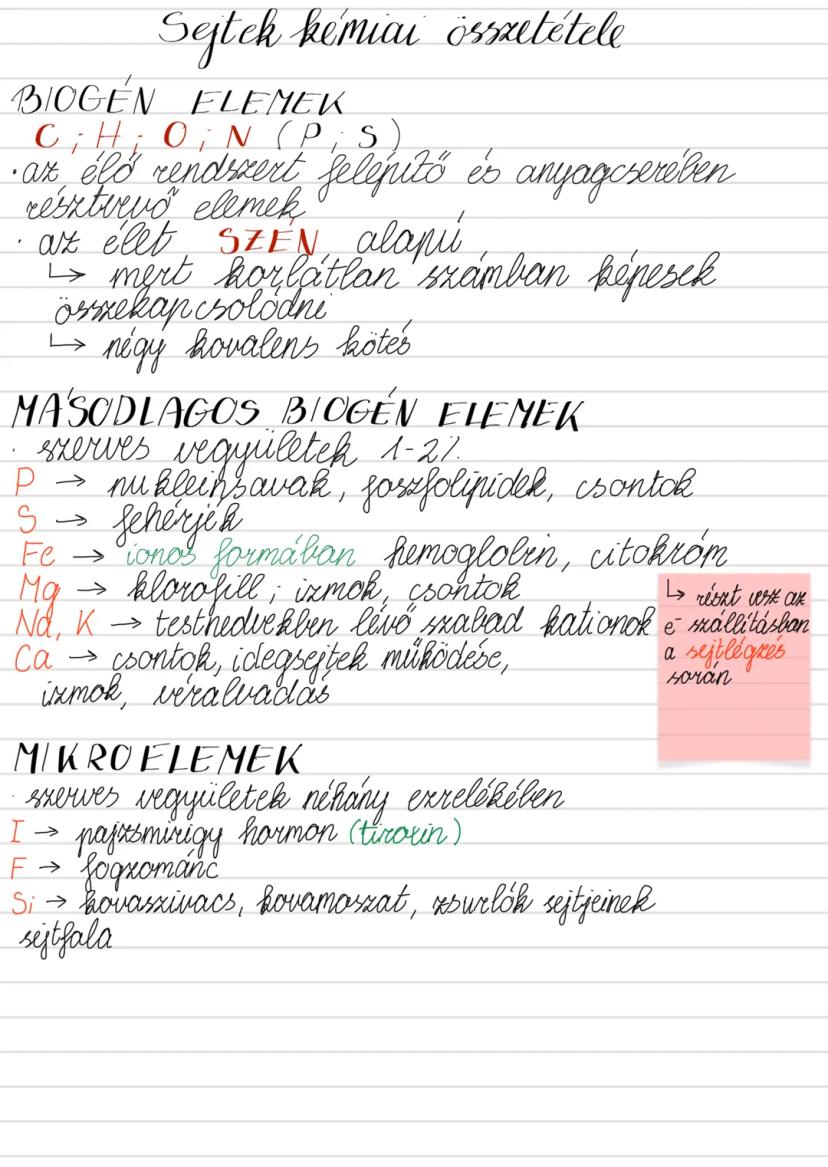 Sejtek kémiai összetétele
BIOGÉN ELEMEK
C; H; O; N (P; S)
· az élő rendszert felépítő és anyagcserében
résztvevő elemek
· az élet SZÉN alapú
↳ mert korlátlan számban képesek
összekapcsolódni
↳ négy kovalens kötés
MÁSODLAGOS BIOGÉN ELEMEK
· szerves vegyületek 1-2%
P → nukleinsavak, foszfolipidek, csontok
S → fehérjék
Fe → ionos formában hemoglobin, citokróm
Mg → klorofill; izmok, csontok
Na, K → testnedvekben lévő szabad kationok
Ca → csontok, idegsejtek működése,
izmok, véralvadás
↳ részt vesz az
e⁻ szállításban
a sejtlégzés
során
MIKROELEMEK
· szerves vegyületek néhány ezrelékében
I → pajzsmirigy hormon (tiroxin)
F → fogzománc
Si → kovaszivacs, kovamoszat, zsurlók sejtjeinek
sejtfala